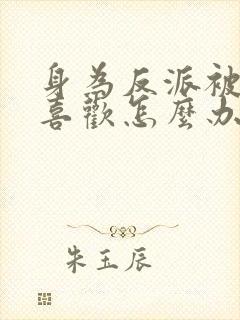 身為反派被
喜歡怎麼办
朱玉辰